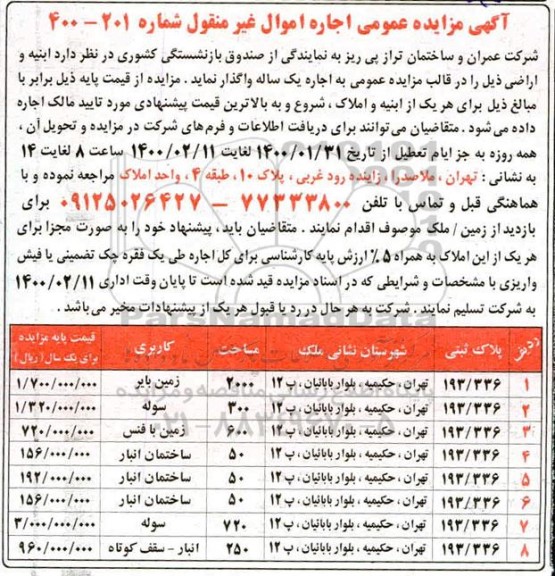 آگهی مزایده عمومی اجاره اموال غیر منقول شماره ۲۰۱ - ۴۰۰
شرکت عمران و ساختمان تراز پی ریز به نمایندگی از صندوق بازنشستگی کشوری در نظر دارد ابنیه و
اراضی ذیل را در قالب مزایده عمومی به اجاره یک ساله واگذار نماید . مزایده از قیمت پایه ذیل برابر با
مبالغ ذیل برای هر یک از ابنیه و املاک ، شروع و به بالاترین قیمت پیشنهادی مورد تایید مالک اجاره
داده می شود . متقاضیان می توانند برای دریافت اطلاعات و فرم های شرکت در مزایده و تحویل آن ،
همه روزه به جز ایام تعطیل از تاریخ ۱۴۰۰/۰۱/۳۱ لغایت ۱۴۰۰/۰۲/۱۱ ساعت ۸ لغایت ۱۴
به نشانی : تهران ، ملاصدرا ، زاینده رود غربی ، پلاک ۱۰ ، طبقه ۴ ، واحد املاک مراجعه نموده و با
هماهنگی قبل و تماس با تلفن ۷۷۳۳۳۸۰۰ - ۰۹۱۲۵۰۲۶۴۲۷ برای
بازدید از زمین / ملک موصوف اقدام نمایند . متقاضیان باید ، پیشنهاد خود را به صورت مجزا برای
هر یک از این املاک به همراه ۵٪ ارزش پایه کارشناسی برای کل اجاره طی یک فقره چک تضمینی یا فیش
واریزی با مشخصات و شرایطی که در اسناد مزایده قید شده است تا پایان وقت اداری ۱۴۰۰/۰۲/۱۱
به شرکت تسلیم نمایند . شرکت به هر حال در رد یا قبول هر یک از پیشنهادات مخیر می باشد .
ردیف پلاک ثبتی شهرستان نشانی ملک مساحت کاربری قیمت پایه مزایده برای یک سال ( ریال )
۱ ۱۹۳/۳۳۶ تهران ، حکیمیه ، بلوار بابائیان ، پ ۱۲ ۲۰۰۰ زمین بایر ۱/۷۰۰/۰۰۰/۰۰۰
۲ ۱۹۳/۳۳۶ تهران ، حکیمیه ، بلوار بابائیان ، پ ۱۲ ۳۰۰ سوله ۱/۳۲۰/۰۰۰/۰۰۰
۳ ۱۹۳/۳۳۶ تهران ، حکیمیه ، بلوار بابائیان ، پ ۱۲ ۶۰۰ زمین با فنس ۷۲۰/۰۰۰/۰۰۰
۴ ۱۹۳/۳۳۶ تهران ، حکیمیه ، بلوار بابائیان ، پ ۱۲ ۵۰ ساختمان انبار ۱۵۶/۰۰۰/۰۰۰
۵ ۱۹۳/۳۳۶ تهران ، حکیمیه ، بلوار بابائیان ، پ ۱۲ ۵۰ ساختمان انبار ۱۹۲/۰۰۰/۰۰۰
۶ ۱۹۳/۳۳۶ تهران ، حکیمیه ، بلوار بابائیان ، پ ۱۲ ۵۰ ساختمان انبار ۱۵۶/۰۰۰/۰۰۰
۷ ۱۹۳/۳۳۶ تهران ، حکیمیه ، بلوار بابائیان ، پ ۱۲ ۷۲۰ سوله ۳/۰۰۰/۰۰۰/۰۰۰
۸ ۱۹۳/۳۳۶ تهران ، حکیمیه ، بلوار بابائیان ، پ ۱۲ ۲۵۰ انبار - سقف کوتاه ۹۶۰/۰۰۰/۰۰۰
ParsNamadData